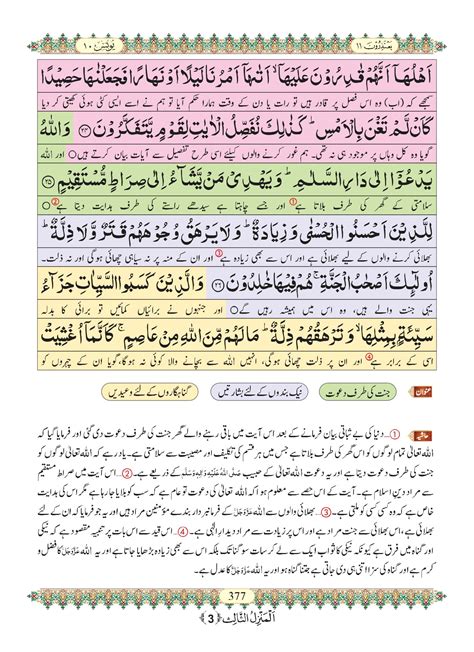 یونس ۱۰
یعتذرون ۱۱
اَهْلُهَاۤ اَنَّهُمْ قٰدِرُوْنَ عَلَیْهَاۤ ۙ اَتٰىهَاۤ اَمْرُنَا لَیْلًا اَوْ نَهَارًا فَجَعَلْنٰهَا حَصِیْدًا
سمجھے کہ (اب) وہ اس فصل پر قادر ہیں تو رات یا دن کے وقت ہمارا حکم آیا تو ہم نے اسے ایسی کٹی ہوئی کھیتی کر دیا
كَاَنْ لَّمْ تَغْنَ بِالْاَمْسِ ؕ كَذٰلِكَ نُفَصِّلُ الْاٰیٰتِ لِقَوْمٍ یَّتَفَكَّرُوْنَ ﴿۲۴﴾ وَ اللّٰهُ
گویا وہ کل وہاں پر موجود ہی نہ تھی۔ ہم غور کرنے والوں کیلئے اسی طرح تفصیل سے آیات بیان کرتے ہیں ○ اور اللہ
یَدْعُوْۤا اِلٰى دَارِ السَّلٰمِ ؕ وَ یَهْدِیْ مَنْ یَّشَآءُ اِلٰى صِرَاطٍ مُّسْتَقِیْمٍ ﴿۲۵﴾
سلامتی کے گھر کی طرف بلاتا ہے ① اور جسے چاہتا ہے سیدھے راستے کی طرف ہدایت دیتا ہے ② ○
لِلَّذِیْنَ اَحْسَنُوا الْحُسْنٰى وَ زِیَادَةٌ ؕ وَ لَا یَرْهَقُ وُجُوْهَهُمْ قَتَرٌ وَّ لَا ذِلَّةٌ ؕ
بھلائی کرنے والوں کے لیے بھلائی ہے اور اس سے بھی زیادہ ③ اور ان کے منہ پر نہ سیاہی چھائی ہوگی اور نہ ذلت۔
اُولٰٓىِٕكَ اَصْحٰبُ الْجَنَّةِ ۚ هُمْ فِیْهَا خٰلِدُوْنَ ﴿۲۶﴾ وَ الَّذِیْنَ كَسَبُوا السَّیِّاٰتِ جَزَآءُ
یہی جنت والے ہیں، وہ اس میں ہمیشہ رہیں گے ○ اور جنہوں نے برائیاں کمائیں تو برائی کا بدلہ
سَیِّئَةٍۭ بِمِثْلِهَا ۙ وَ تَرْهَقُهُمْ ذِلَّةٌ ؕ مَا لَهُمْ مِّنَ اللّٰهِ مِنْ عَاصِمٍ ۚ كَاَنَّمَاۤ اُغْشِیَتْ
اسی کے برابر ہے ④ اور ان پر ذلت چھائی ہوگی، انہیں اللہ سے بچانے والا کوئی نہ ہوگا، گویا ان کے چہروں کو
عنوان جنت کی طرف دعوت نیک بندوں کے لئے بشارتیں گناہگاروں کے لئے وعیدیں
حاشیہ ①… دنیا کی بے ثباتی بیان فرمانے کے بعد اس آیت میں باقی رہنے والے گھر جنت کی طرف دعوت دی گئی اور فرمایا گیا کہ
اللہ تعالیٰ تمام لوگوں کو اس گھر کی طرف دعوت دیتا ہے جس میں ہر قسم کی تکلیف اور مصیبت سے سلامتی ہے۔ یاد رہے کہ لوگوں کو
جنت کی طرف اللہ تعالیٰ کی دعوت اللہ تعالیٰ کے حبیب صَلَّی اللہُ عَلَیْہِ وَسَلَّم کے ذریعے ہے۔ ②… اس آیت میں صراط مستقیم
سے مراد دین اسلام ہے۔ آیت کے اس حصے سے معلوم ہوا کہ اللہ تعالیٰ کی دعوت تو عام ہے کہ سب کو بلایا جا رہا ہے مگر اس کی ہدایت
خاص ہے کہ وہ کسی کسی کو ملتی ہے۔ ③… بھلائی والوں سے اللہ عَزَّوَجَلَّ کے فرمانبردار بندے مؤمنین مراد ہیں اور یہ جو فرمایا کہ ان کے لئے
بھلائی ہے، اس بھلائی سے جنت مراد ہے اور اس پر زیادت سے مراد دیدارِ الٰہی ہے۔ ④… اس قید سے اس بات پر تنبیہ مقصود ہے کہ نیکی
اور گناہ میں فرق ہے کیونکہ نیکی کا ثواب ایک سے لے کر سات سو گنا تک بلکہ اس سے بھی زیادہ بڑھایا جاتا ہے اور یہ اللہ عَزَّوَجَلَّ کا فضل
ہے اور گناہ کی سزا اتنی ہی دی جاتی ہے جتنا گناہ ہو اور یہ اللہ عَزَّوَجَلَّ کا عدل ہے۔
377
اَلْمَنْزِلُ الثَّالِث ﴿3﴾